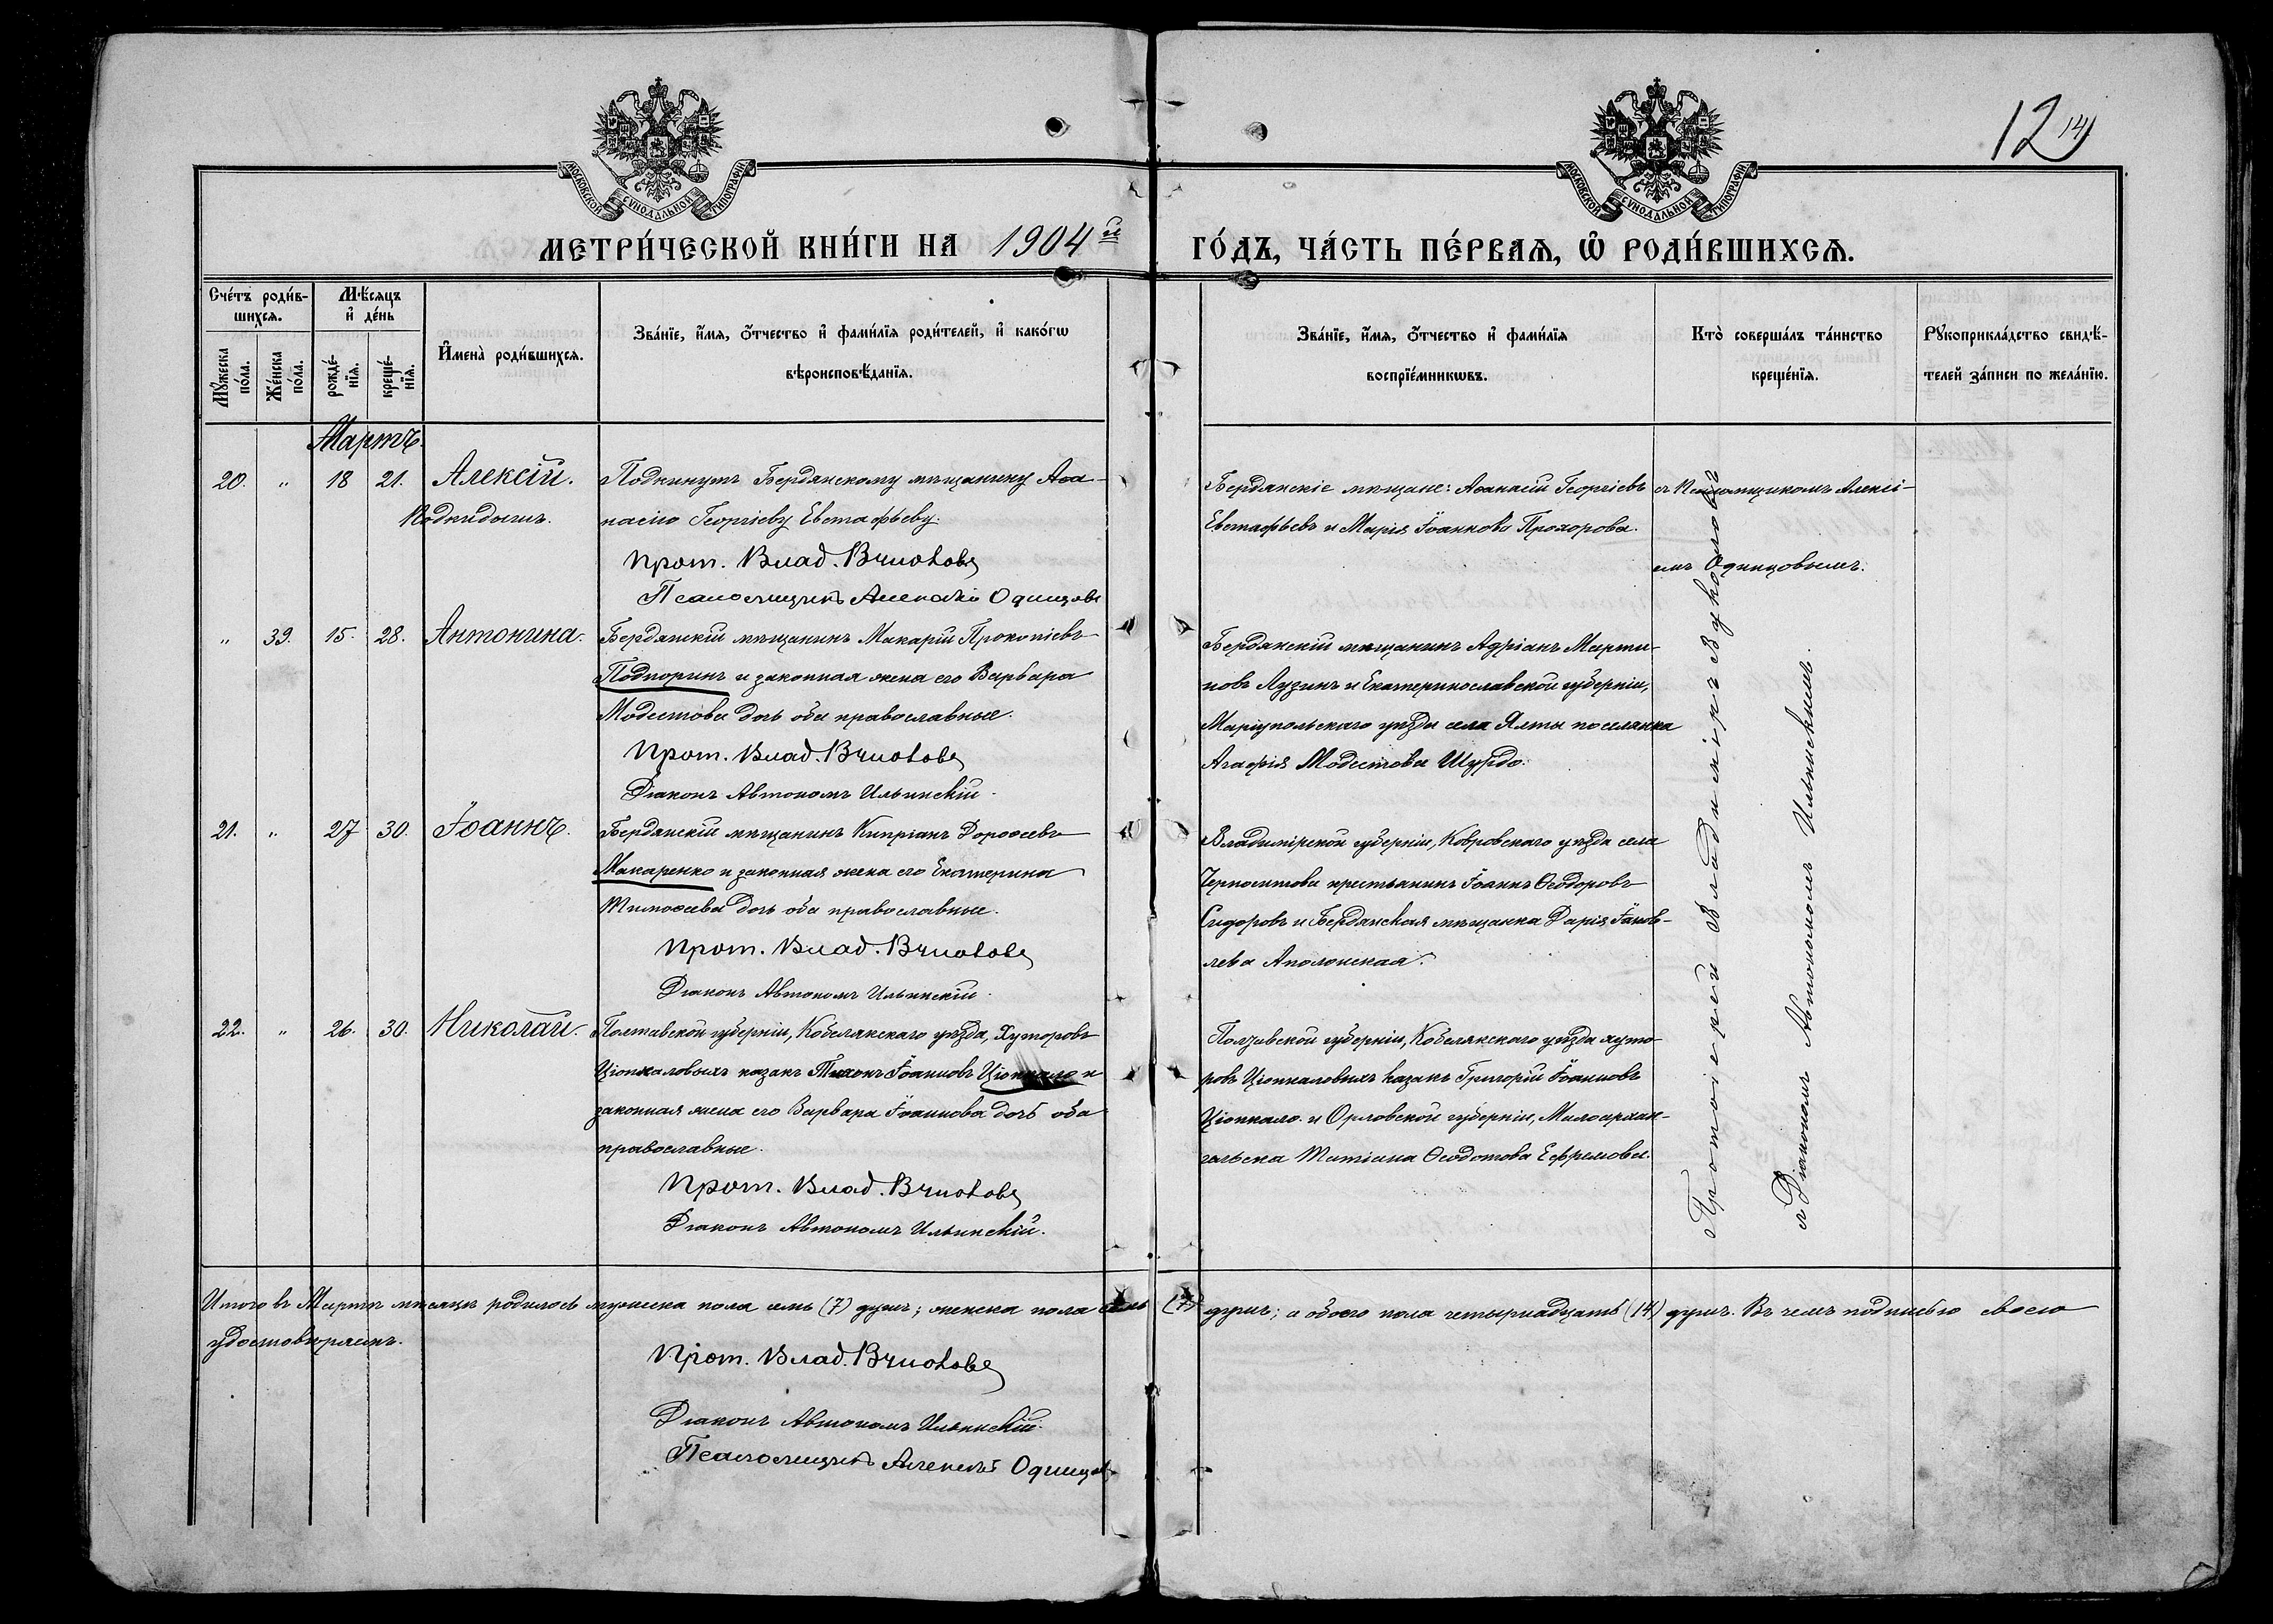 12
14
МОСКОВСКОЙ СѴНОДАЛЬНОЙ ТИПОГРАФІИ.
МОСКОВСКОЙ СѴНОДАЛЬНОЙ ТИПОГРАФІИ.
МЕТРИ́ЧЕСКОЙ КНИ́ГИ НА 1904й ГО́ДЪ, ЧА́СТЬ ПЕ́РВАѦ, Ѽ РОДИ́ВШИХСѦ.
Сче́тъ роди́в-
шихсѧ.
Мѣ́сѧцъ
и҆ де́нь
Мꙋ́жеска
по́ла.
Же́нска
по́ла.
рожде́-
нїѧ.
креще́-
нїѧ.
И҆мена̀ роди́вшихсѧ.
Зва́нїе, и҆́мѧ, ѻ҆́тчество и҆ фами́лїѧ роди́телей, и҆ како́гѡ
вѣроисповѣ́данїѧ.
Зва́нїе, и҆́мѧ, ѻ҆́тчество и҆ фами́лїѧ
воспрїе́мникѡвъ.
Кто̀ соверша́лъ та́инство
креще́нїѧ.
Рꙋкоприкла́дство свидѣ́-
телей за́писи по жела́нїю.
Мартъ.
20. " 18 21. Алексій.
Подкидышъ.
Подкинутъ Бердянскому мѣщанину Аѳа-
насію Георгіеву Евстафьеву.
Прот. Влад. Вуколовъ
Псаломщикъ Алексѣй Одинцовъ
Бердянскіе мѣщане: Аѳанасій Георгіевъ
Евстафьевъ и Марія Іоаннова Прохорова.
съ Псаломщикомъ Алексі-
емъ Одинцовымъ.
" 39. 15. 28. Антонина.
Бердянскій мѣщанинъ Макарій Прокопіевъ
Подпоринъ и законная жена его Варвара
Модестова дочь оба православные.
Прот. Влад. Вуколовъ
Діаконъ Автономъ Ильинскій.
Бердянскій мѣщанинъ Адріанъ Марти-
новъ Лузинъ и Екатеринославской губерніи,
Маріупольскаго уѣзда села Ялты поселянка
Агафія Модестова Шурдо.
21. " 27 30. Іоаннъ.
Бердянскій мѣщанинъ Кипріанъ Дороѳеевъ
Макаренко и законная жена его Екатерина
Тимоѳеева дочь оба православные.
Прот. Влад. Вуколовъ
Діаконъ Автономъ Ильинскій.
Владимірской губерніи, Ковровскаго уѣзда села
крестьянинъ Іоаннъ Ѳеодоровъ
Сидоровъ и Бердянская мѣщанка Дарія Іаков-
лева Аполонская.
22. " 26. 30. Николай.
Полтавской губерніи, Кобелякскаго уѣзда, хуторовъ
Ціопкаловыхъ казакъ Тихонъ Іоанновъ Ціопкало и
законная жена его Варвара Іоаннова дочь оба
православные.
Прот. Влад. Вуколовъ
Діаконъ Автономъ Ильинскій.
Полтавской губерніи, Кобелякскаго уѣзда хуто-
ровъ Ціопкаловыхъ казакъ Григорій Іоанновъ
Ціопкало и Орловской губерніи, Малоархан-
гельска Татіана Ѳеодотова Ефремова.
Протоіерей Владиміръ Вуколовъ
съ Діакономъ Автономомъ Ильинскимъ.
Итого въ Мартѣ мѣсяцѣ родилось мужеска пола семь (7) душъ; женска пола семь (7) душъ; а обоего пола четырнадцать (14) душъ. Въ чемъ подписью своею
удостовѣряемъ.
Прот. Влад. Вуколовъ
Діаконъ Автономъ Ильинскій.
Псаломщикъ Алексѣй Одинцовъ